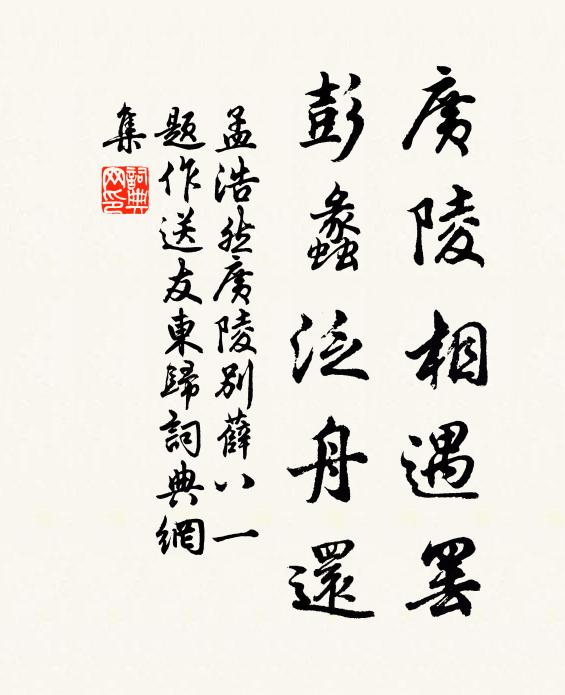 廣陵相遇罷
彭蠡泛舟還
孟浩然廣陵別薛八一
題作送友東歸詞典網
集
詞典
网印